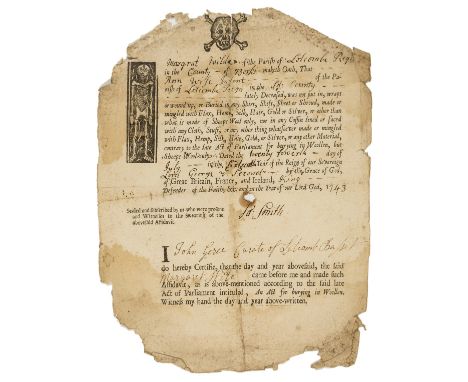 Margrat of the Parish of Letcombe Regis
in the County of Berks maketh Oath, That
Ann Infant of the Pa-
rish of Letcombe Regis in the County
lately Deceased, was not put in, wrapt
or wound up, or Buried in any Shirt, Shift, Sheet or Shroud, made or
mingled with Flax, Hemp, Silk, Hair, Gold or Silver, or other than
what is made of Sheeps Wool only, nor in any Coffin lined or faced
with any Cloth, Stuff, or any other thing whatsoever made or mingled
with Flax, Hemp, Silk, Hair, Gold, or Silver, or any other Material,
contrary to the late Act of Parliament for burying in Woollen, but
Sheeps Wool only. Dated the twenty day of
July in the Year of the Reign of our Sovereign
Lord George the Second by the Grace of God,
of Great Britain, France, and Ireland, King
Defender of the Faith, &c. and in the Year of our Lord God, 1743
Sealed and Subscribed by us who were present
and Witnesses to the Swearing of the
abovesaid Affidavit.
Smith
I John Curate of
do hereby Certifie, that the day and year abovesaid, the said
Margaret came before me and made such
Affidavit, as is above-mentioned according to the said late
Act of Parliament intituled, An Act for burying in Woollen.
Witness my hand the day and year above-written.